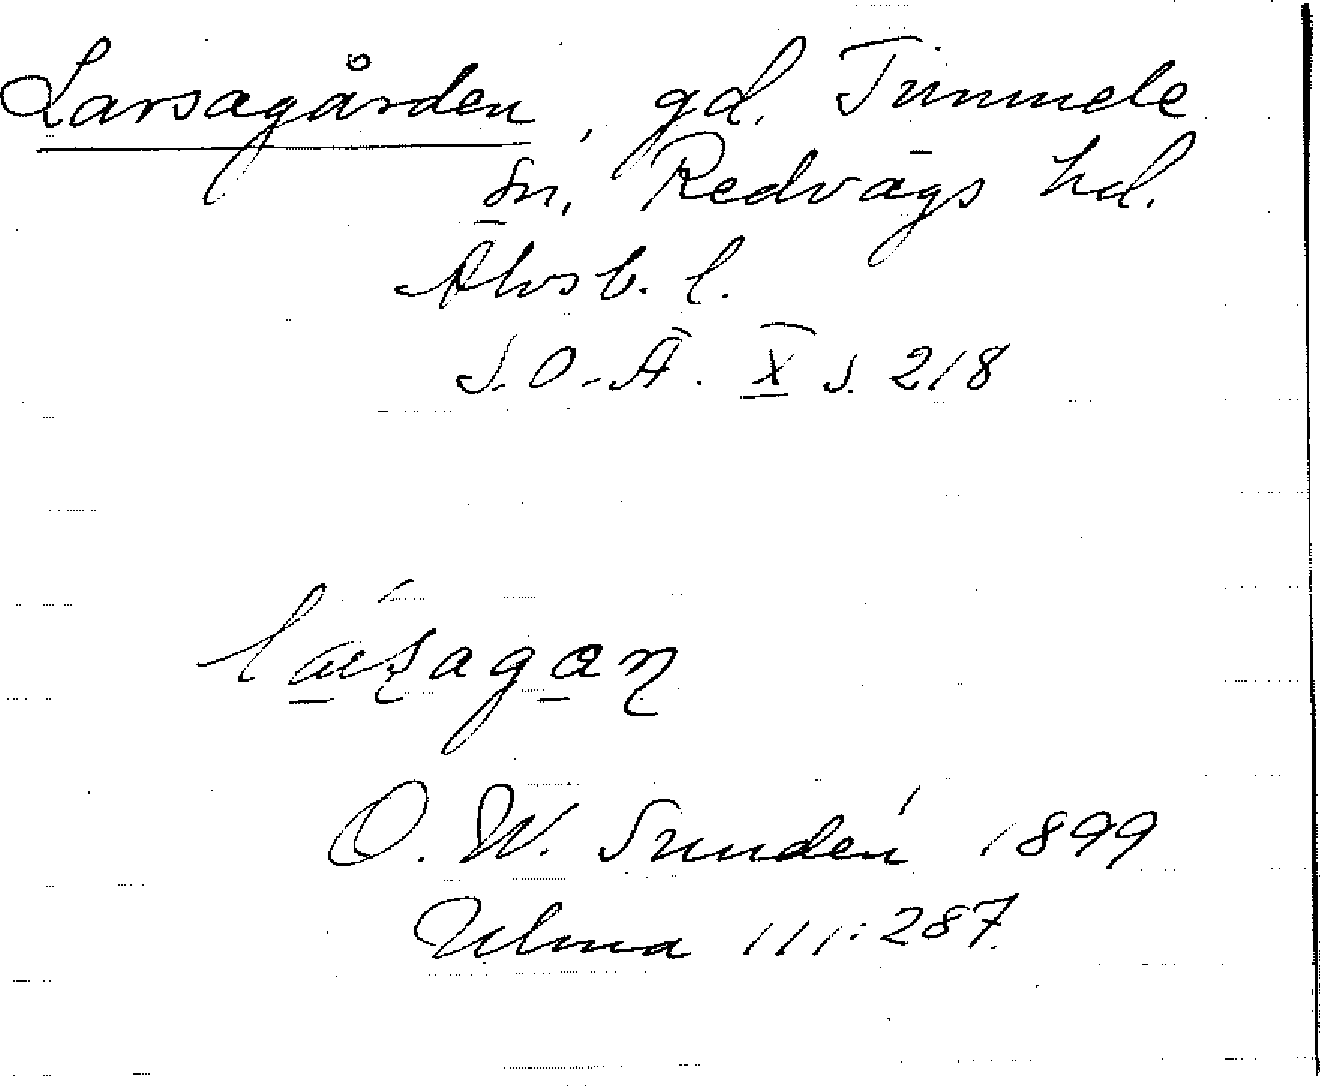 Larsagården, gd. Timmele
sn, Redvägs hd.
Älvsb. l.
S.O.-Ä. X s. 218
O. W. Sundén 1899
Ulma 111:287.